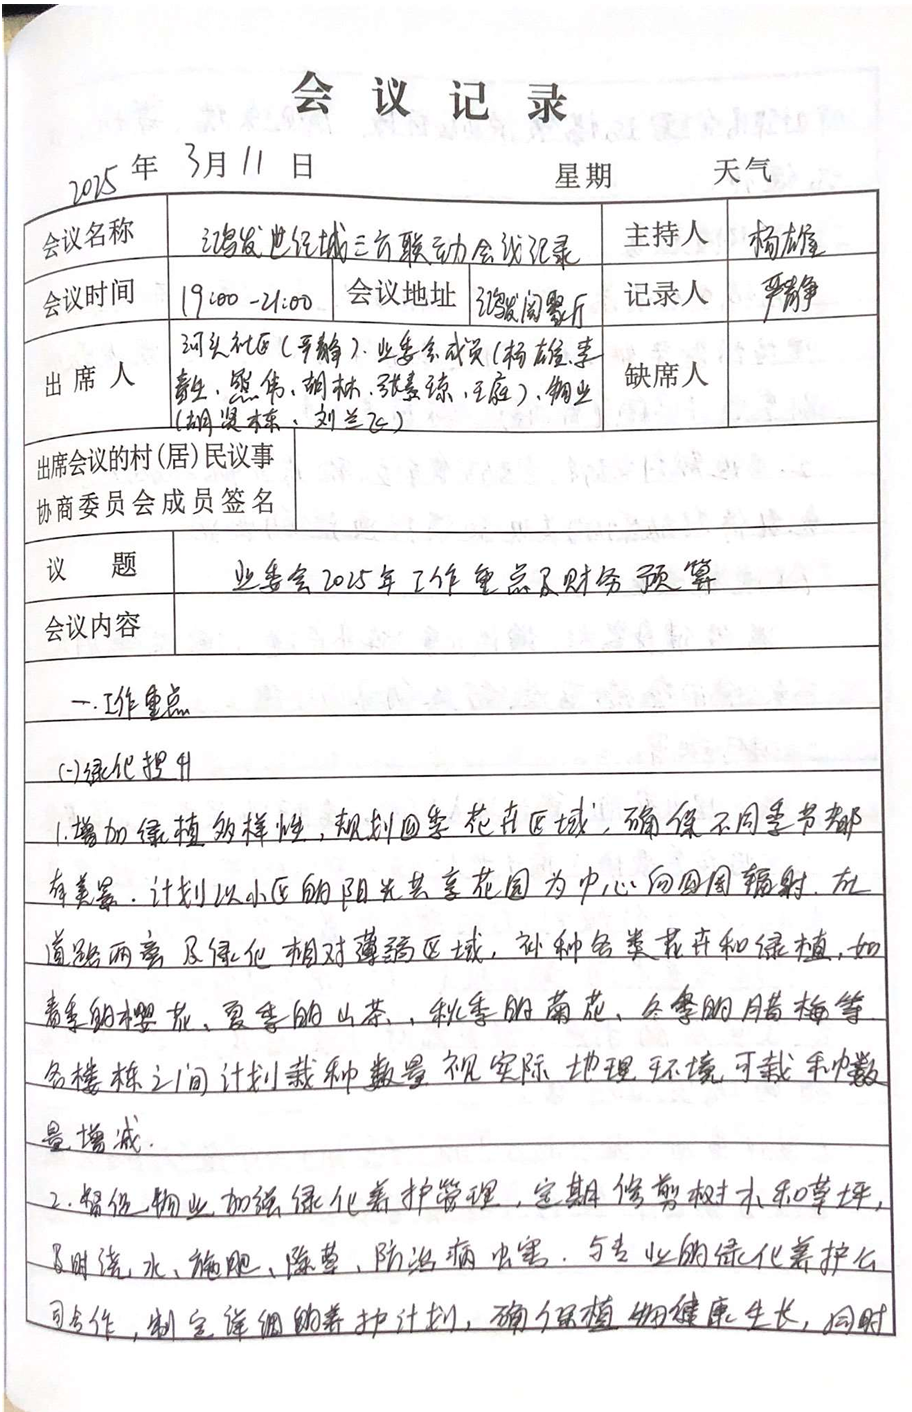 会议记录
2025年3月11日 星期 天气
会议名称 鸿发世纪城三方联动会议记录 主持人 杨雄
会议时间 19:00-21:00 会议地址 鸿发阁聚厅 记录人 严静
出席人 河头社区(严静)、业委会成员(杨雄、李
春生、熊伟、胡林、张春琼、王庭)、物业
(胡贤栋、刘兰飞) 缺席人
出席会议的村(居)民议事
协商委员会成员签名
议题 业委会2025年工作重点及财务预算
会议内容
一.工作重点
(一)绿化提升
1.增加绿植多样性,规划四季花卉区域,确保不同季节都
有美景.计划以小区的阳光共享花园为中心向四周辐射.在
道路两旁及绿化相对薄弱区域,补种各类花卉和绿植,如
春季的樱花、夏季的山茶、秋季的菊花、冬季的腊梅等.
各楼栋之间计划栽种数量视实际地理环境可栽种数
量增减.
2.督促物业加强绿化养护管理,定期修剪树木和草坪,
及时浇水、施肥、除草、防治病虫害.与专业的绿化养护公
司合作,制定详细的养护计划,确保植物健康生长,同时